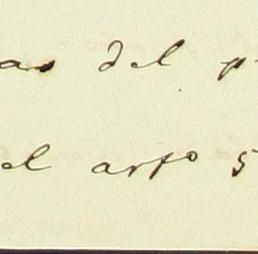 as del p
el arto 5